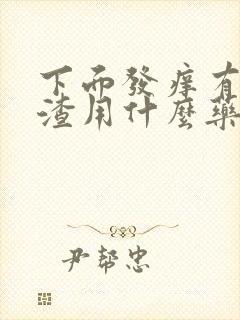 下面發痒有
渣用什麼藥
尹幇忠